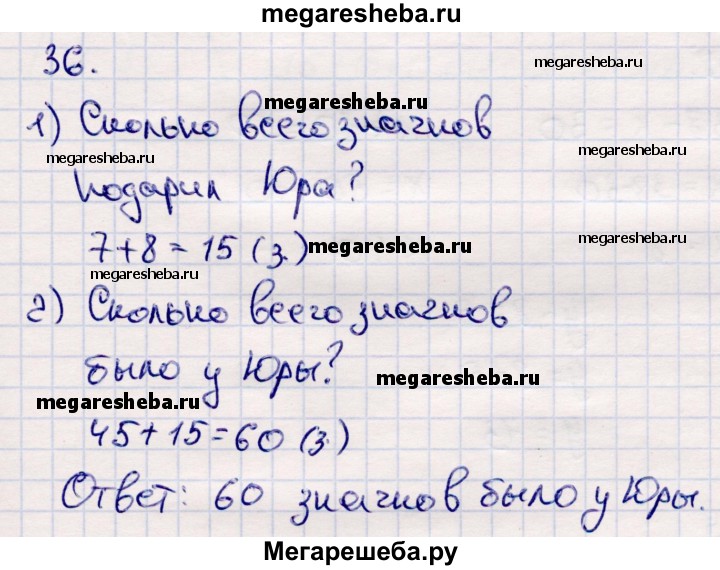 megaresheba.ru
36.
megaresheba.ru
megaresheba.ru
1) Сколько всего значков
megaresheba.ru
подарил Юра?
megaresheba.ru
7+8=15 (з.)
megaresheba.ru
megaresheba.ru
2) Сколько всего значков
было у Юры?
megaresheba.ru
megaresheba.ru
45+15=60 (з.)
Ответ: 60 значков было у Юры.
Мегарешеба.ру